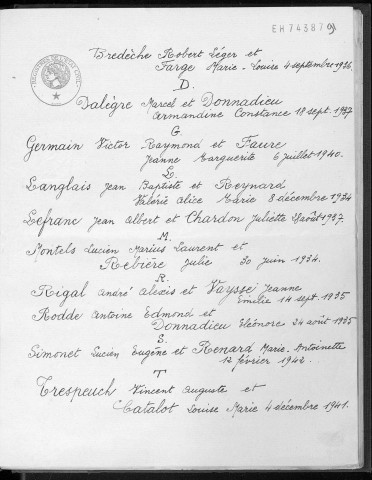 EH743870
Bredèche Robert Léger et
Farge Marie-Louise 4 septembre 1936.
D.
Dalègre Marcel et Donnadieu
Armandine Constance 18 sept. 1937
G
Germain Victor Raymond et Faure
Jeanne Marguerite 6 juillet 1940.
L.
Langlais Jean Baptiste et Reynard
Valérie Alice Marie 8 décembre 1934
Lefranc Jean Albert et Chardon Juliette 28 août 1937.
M.
Montels Lucien Marius Laurent et
Rebière Julie 30 juin 1934.
R.
Rigal André Alexis et Vaysse Jeanne
Emilie 14 sept. 1935
Rodde Antoine Edmond et
Donnadieu Eléonore 24 août 1935
S.
Simonet Lucien Eugène et Renard Marie-Antoinette
12 février 1942.
T
Trespeuch Vincent Auguste et
Catalot Louise Marie 4 décembre 1941.